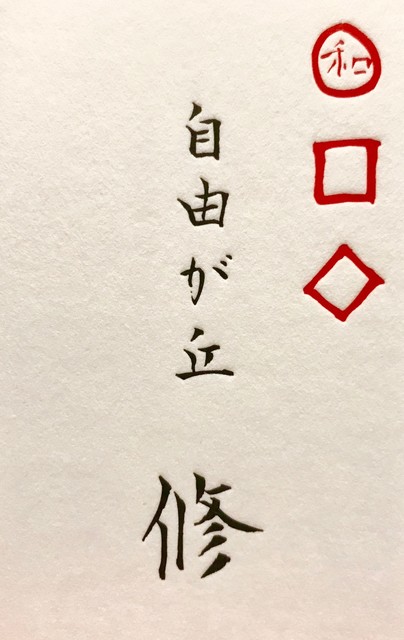 和
自由が丘
修